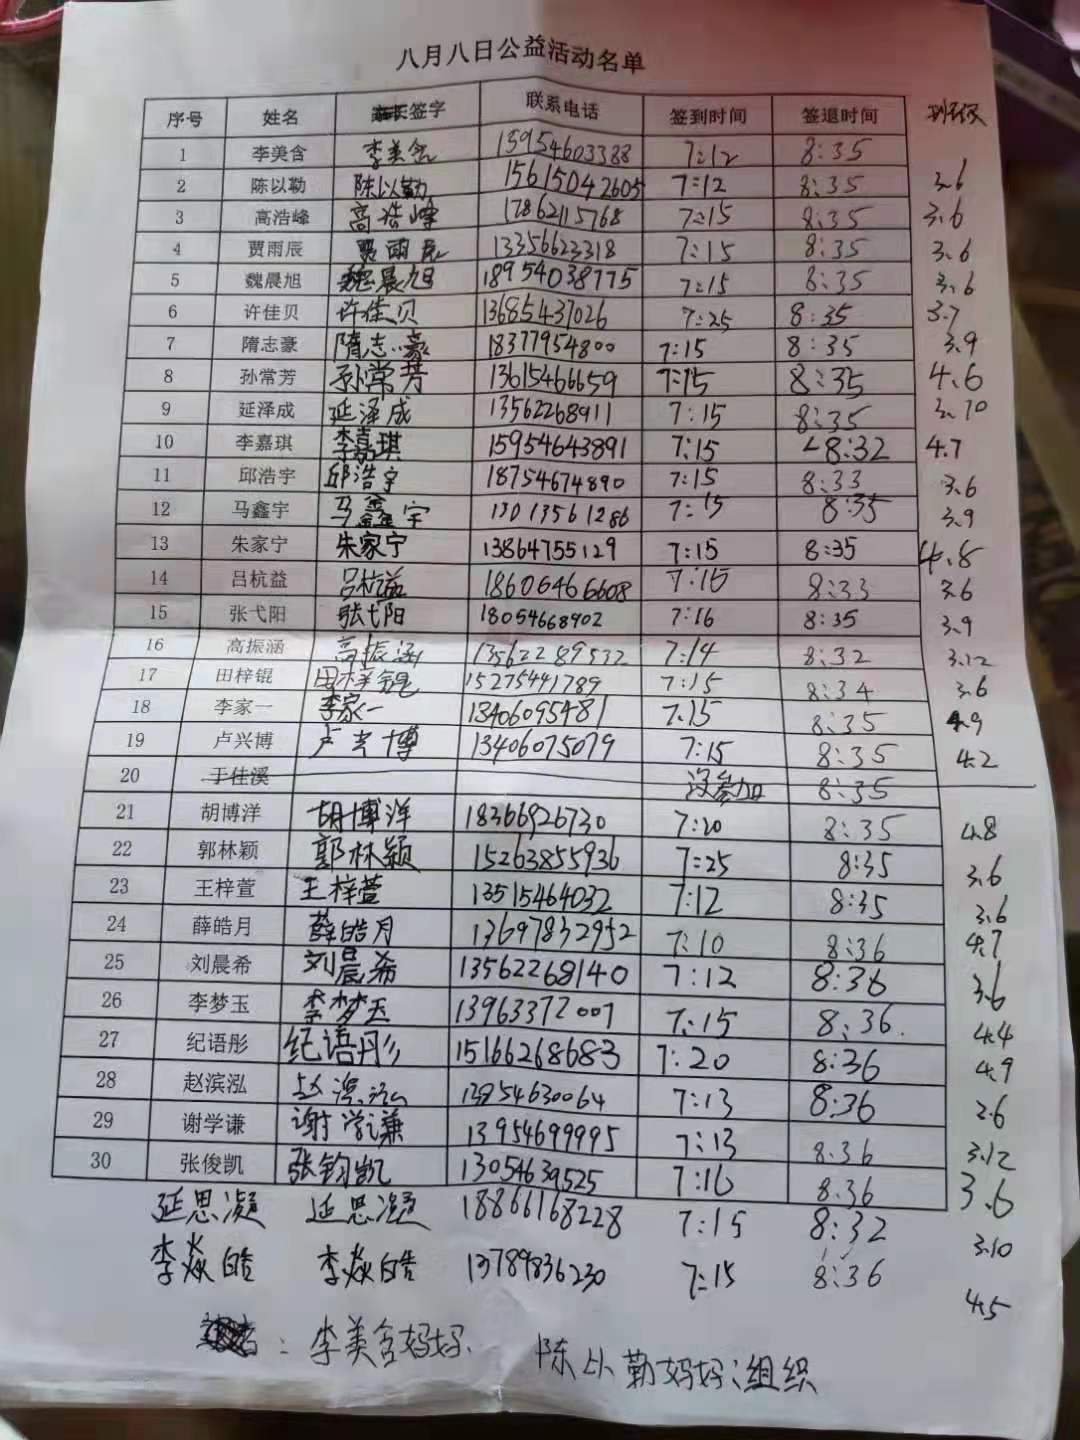 八月八日公益活动名单
序号 姓名 签字 联系电话 签到时间 签退时间 班级
1 李美含 李美含 15954603388 7:12 8:35
2 陈以勒 陈以勒 15615042605 7:12 8:35 3.6
3 高浩峰 高浩峰 17862115768 7:15 8:35 3.6
4 贾雨辰 贾雨辰 13356623318 7:15 8:35 3.6
5 魏晨旭 魏晨旭 18954038775 7:15 8:35 3.6
6 许佳贝 许佳贝 13685437026 7:25 8:35 3.7
7 隋志豪 隋志豪 18377954800 7:15 8:35 3.9
8 孙常芳 孙常芳 13615466659 7:15 8:35 4.6
9 延泽成 延泽成 13562268911 7:15 8:35 3.10
10 李嘉琪 李嘉琪 15954643891 7:15 8:32 4.7
11 邱浩宇 邱浩宇 18754674890 7:15 8:33 3.6
12 马鑫宇 马鑫宇 13013561286 7:15 8:35 3.9
13 朱家宁 朱家宁 13864755129 7:15 8:35 4.8
14 吕杭益 吕杭益 18606466608 7:15 8:33 3.6
15 张弋阳 张弋阳 18054668902 7:16 8:35 3.9
16 高振涵 高振涵 13562289532 7:14 8:32 3.12
17 田梓锟 田梓锟 15275441789 7:15 8:34 3.6
18 李家一 李家一 13406095481 7:15 8:35 4.9
19 卢兴博 卢兴博 13406075079 7:15 8:35 4.2
20 于佳溪 没参加 8:35
21 胡博洋 胡博洋 18366926730 7:20 8:35 4.8
22 郭林颖 郭林颖 15263855936 7:25 8:35 3.6
23 王梓萱 王梓萱 13515464032 7:12 8:35 3.6
24 薛皓月 薛皓月 13697832952 7:10 8:36 4.7
25 刘晨希 刘晨希 13562268140 7:12 8:36 3.6
26 李梦玉 李梦玉 13963372007 7:15 8:36. 4.4
27 纪语彤 纪语彤 15166268683 7:20 8:36 4.9
28 赵滨泓 赵滨泓 13854630064 7:13 8:36 2.6
29 谢学谦 谢学谦 13954699995 7:13 8:36 3.12
30 张俊凯 张钧凯 13054639525 7:16 8:36 3.6
延思凝 延思凝 18866168228 7:15 8:32 3.10
李焱皓 李焱皓 13789836230 7:15 8:36 4.5
: 李美含妈妈. 陈以勒妈妈:组织